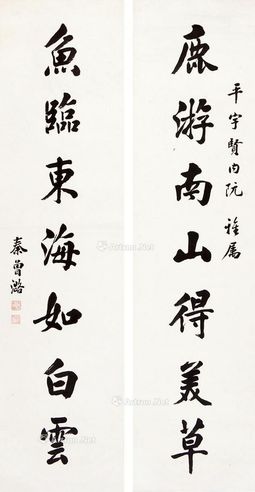 平宇賢内阮 雅属
鹿游南山得美草
魚臨東海如白雲
秦曾潞